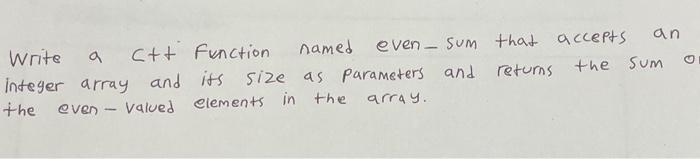 Write a C++ Function named even_sum that accepts an
integer array and its size as parameters and returns the sum
the even-valued elements in the array.